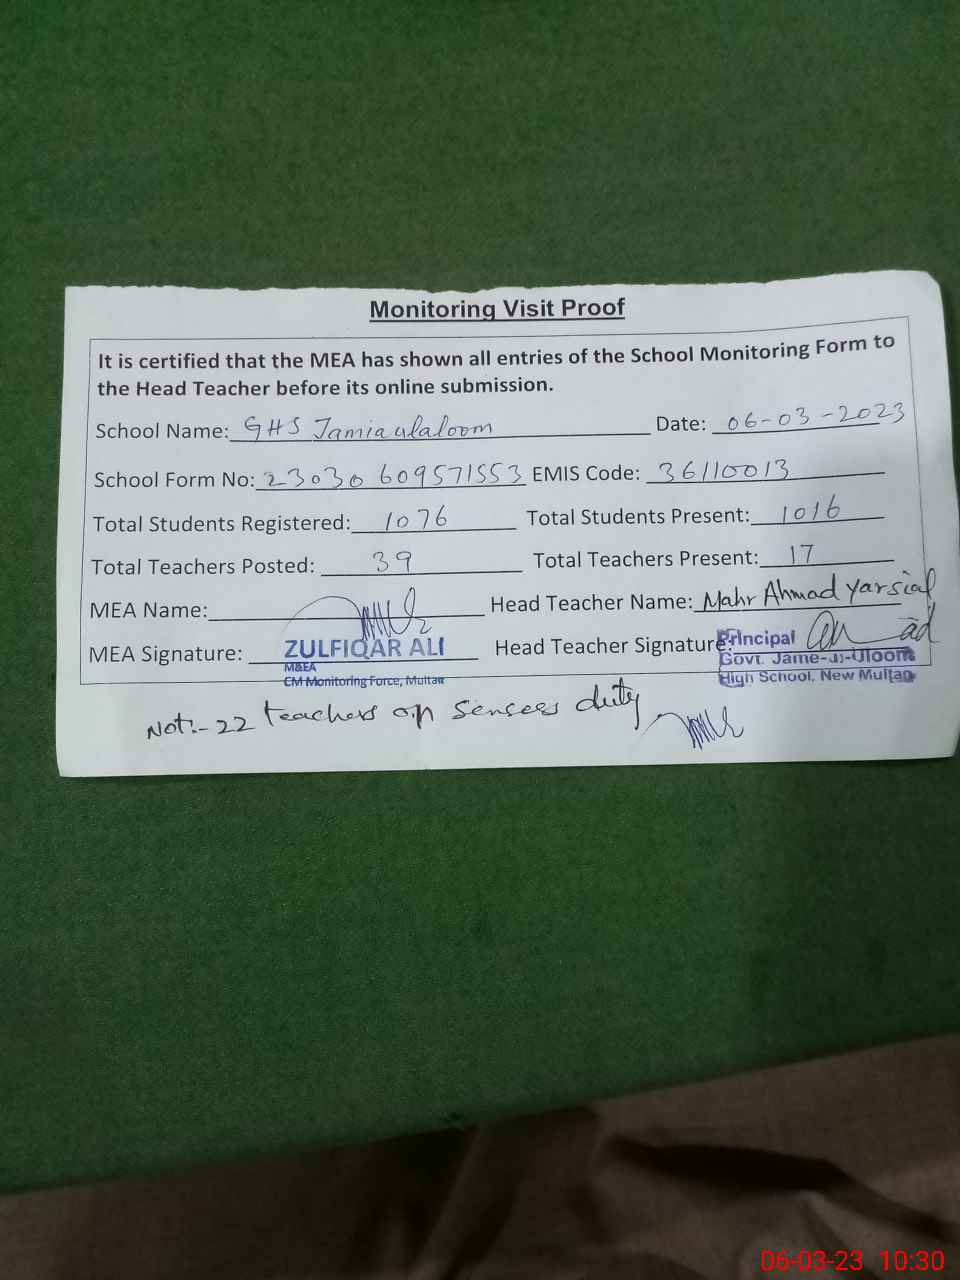 Monitoring Visit Proof
It is certified that the MEA has shown all entries of the School Monitoring Form to
the Head Teacher before its online submission.
School Name: GHS Jamiaulaloom Date: 06-03-2023
School Form No: 23030609571553 EMIS Code: 36110013
Total Students Registered: 1076 Total Students Present: 1016
Total Teachers Posted: 39 Total Teachers Present: 17
MEA Name: Head Teacher Name: Mahr Ahmad Yarsial
MEA Signature: Head Teacher Signature:
ZULFIQAR ALI
M&EA
CM Monitoring Force, Multan
Principal
Govt. Jame-ul-Uloom
High School, New Multan
Not:- 22 teachers on senses duty
06-03-23 10:30